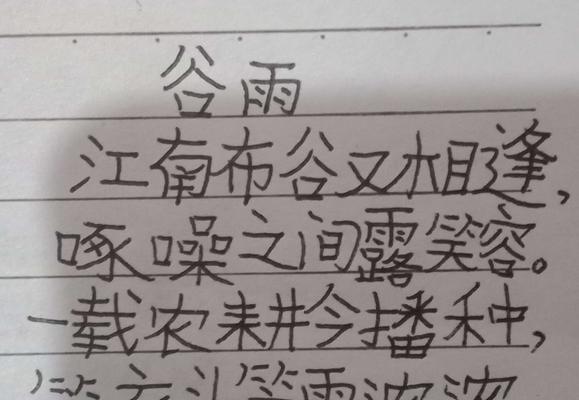 谷雨
江南布谷又相逢，
啄噪之间露笑容。
一载农耕今播种，
雨浓浓